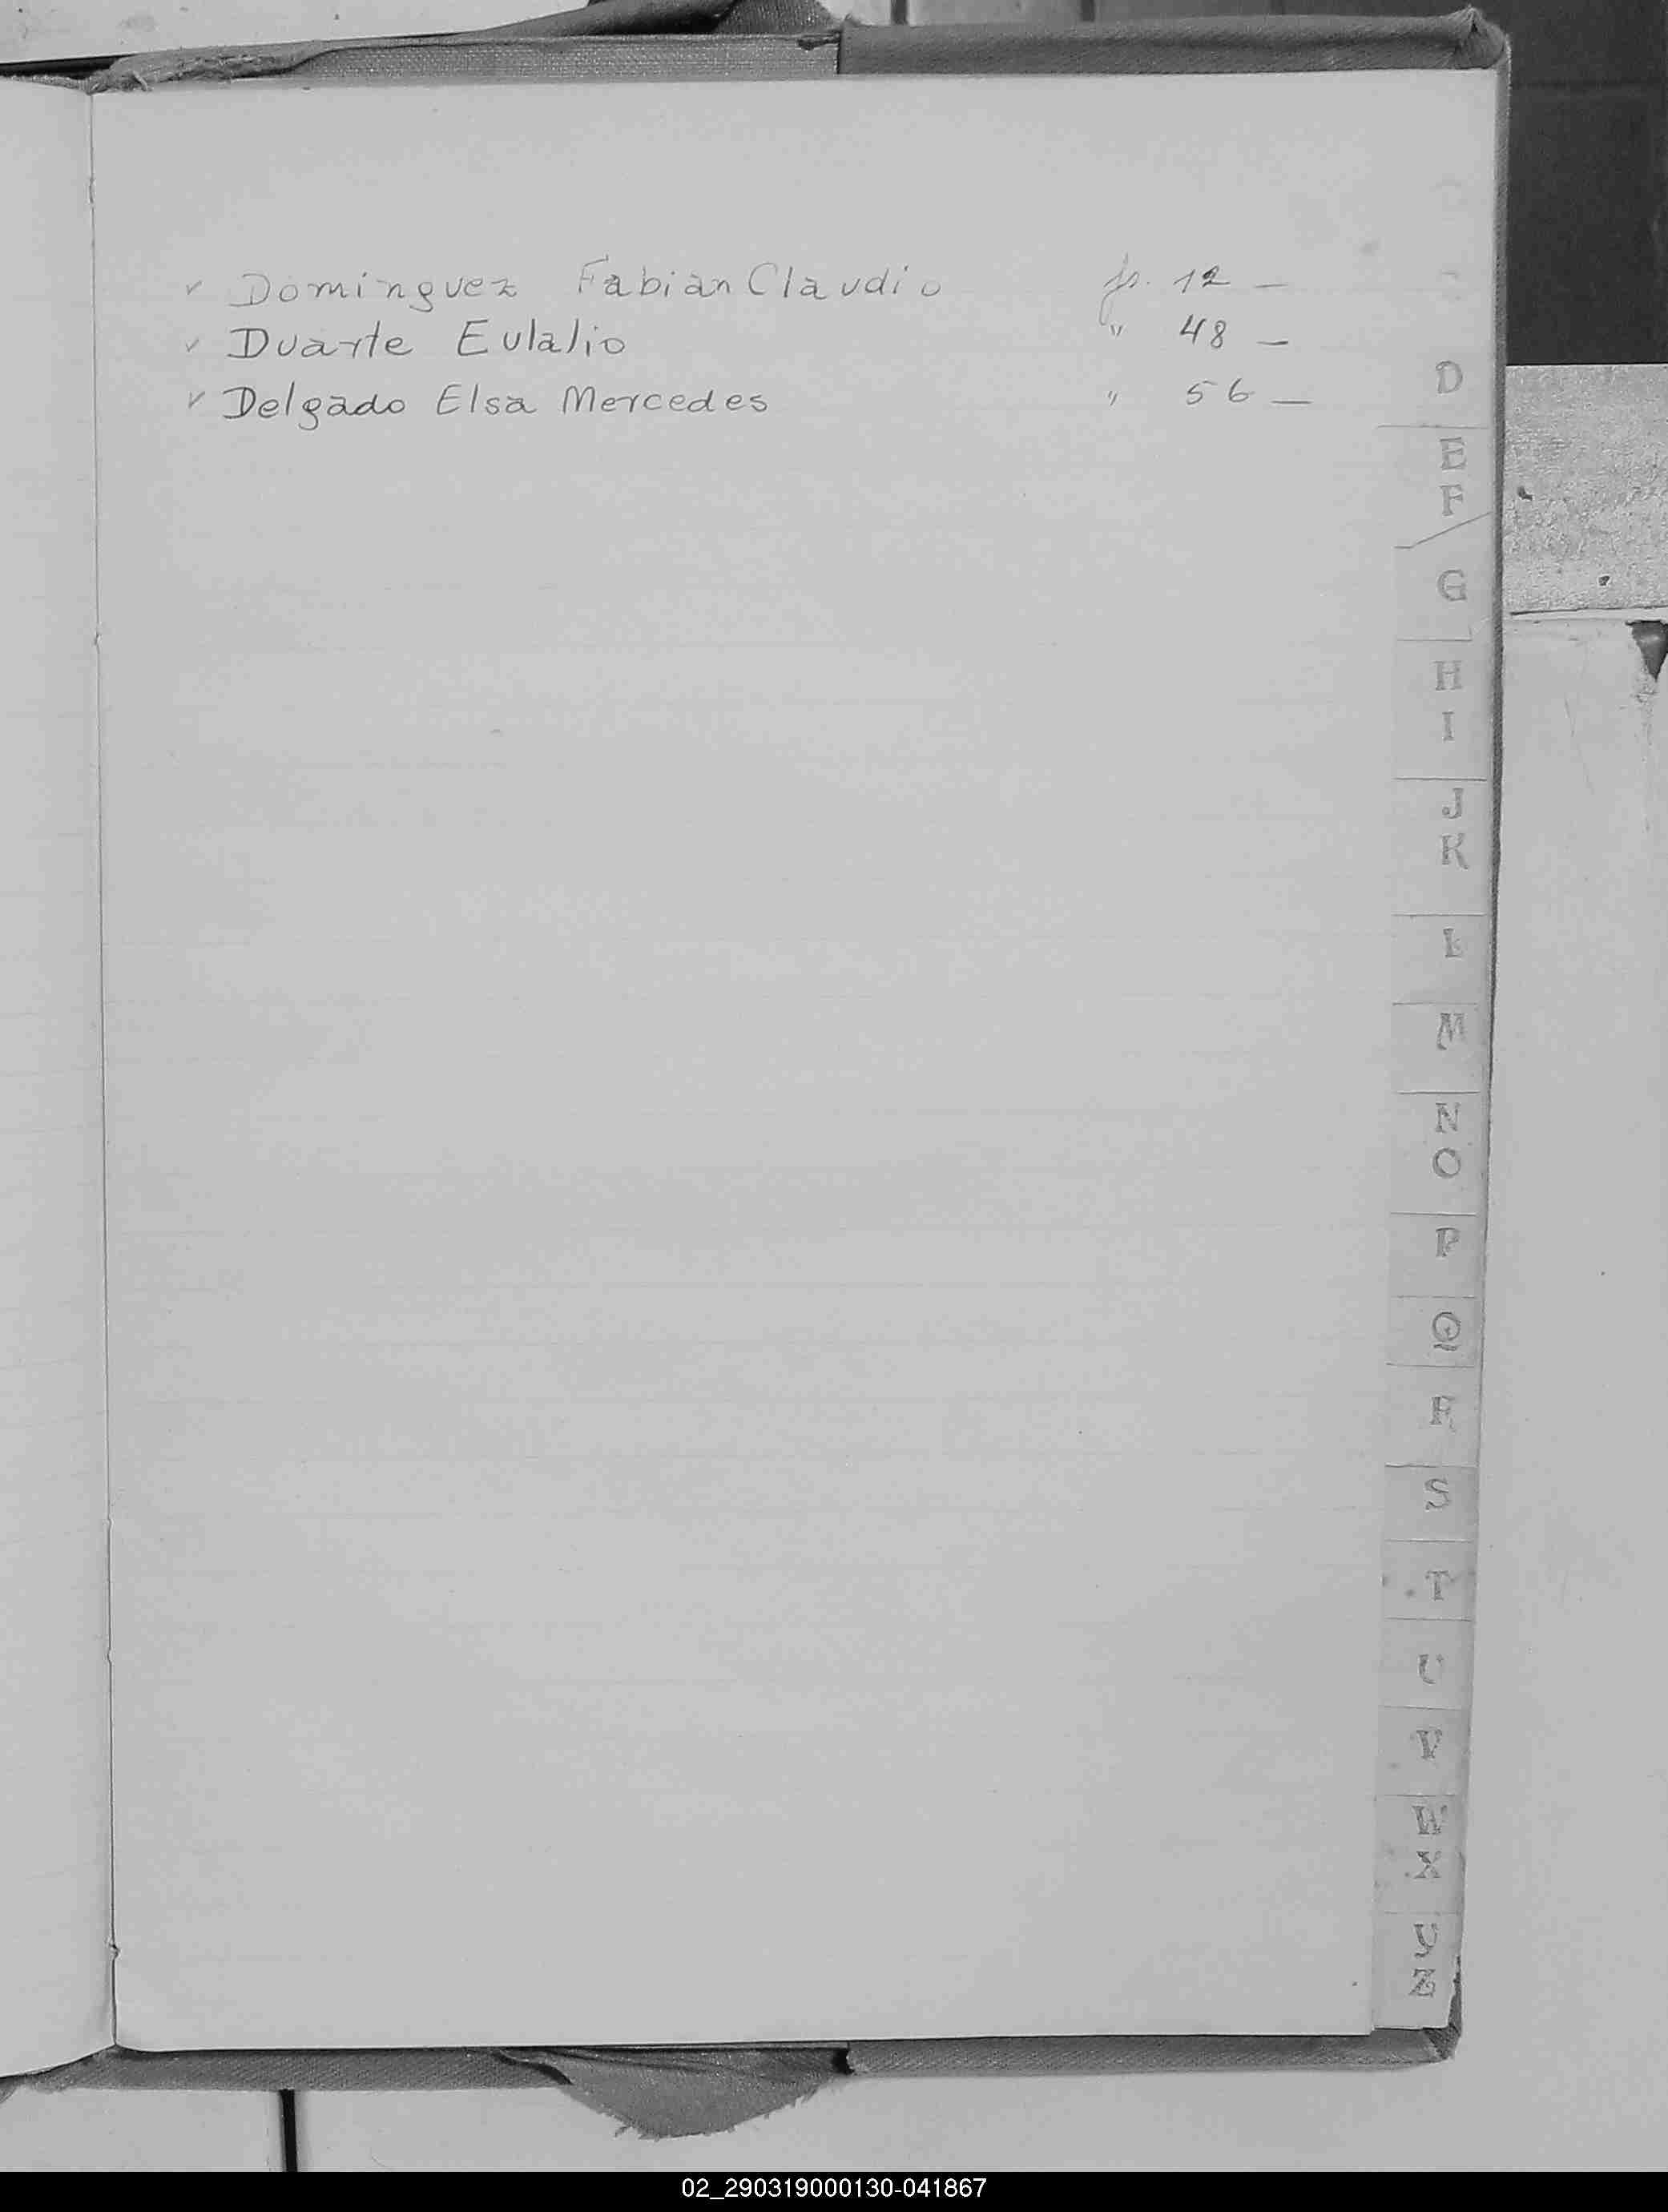 ✓ Dominguez Fabian Claudio fs. 12 —
✓ Duarte Eulalio " 48 —
✓ Delgado Elsa Mercedes " 56 —
D
E
F
G
H
I
J
K
L
M
N
O
P
Q
R
S
T
U
V
W
X
Y
Z
02_290319000130-041867